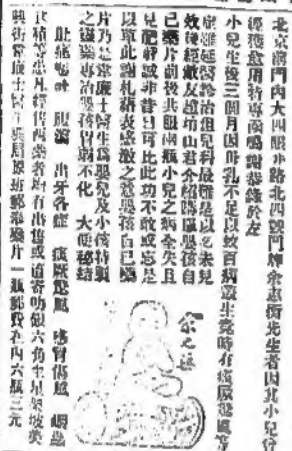 北京前門內大四眼井路北四號門牌余志衡先生者因其小兒曾
經獲愈用特專函鳴謝恭錄於左
小兒生後三個月因母乳不足以致百病叢生竟時有痰厥驚風等
症雖延醫診治但兒科最難是以乞未見
效後經敝友趙靖山君介紹購區嬰孩自
己藥片前後共服兩瓶小兒之病全失且
見肥胖誠非昔日可比此功不敢或忘是
以草此謝札藉表感激之忱嬰孩自己藥
片乃是韋廉士醫生為嬰兒及小孩特製
之靈藥專治嬰孩胃弱不化 大便秘結
肚痛嘔吐 腹瀉 出牙各症 痰厥驚風 感冒傷風 蟣蟲
食積等患凡經售西藥者均有出售或直寄郵銀六角至星架坡英
與街韋廉士醫生藥局原班郵奉藥片一瓶郵費在內六瓶三元
余之孫